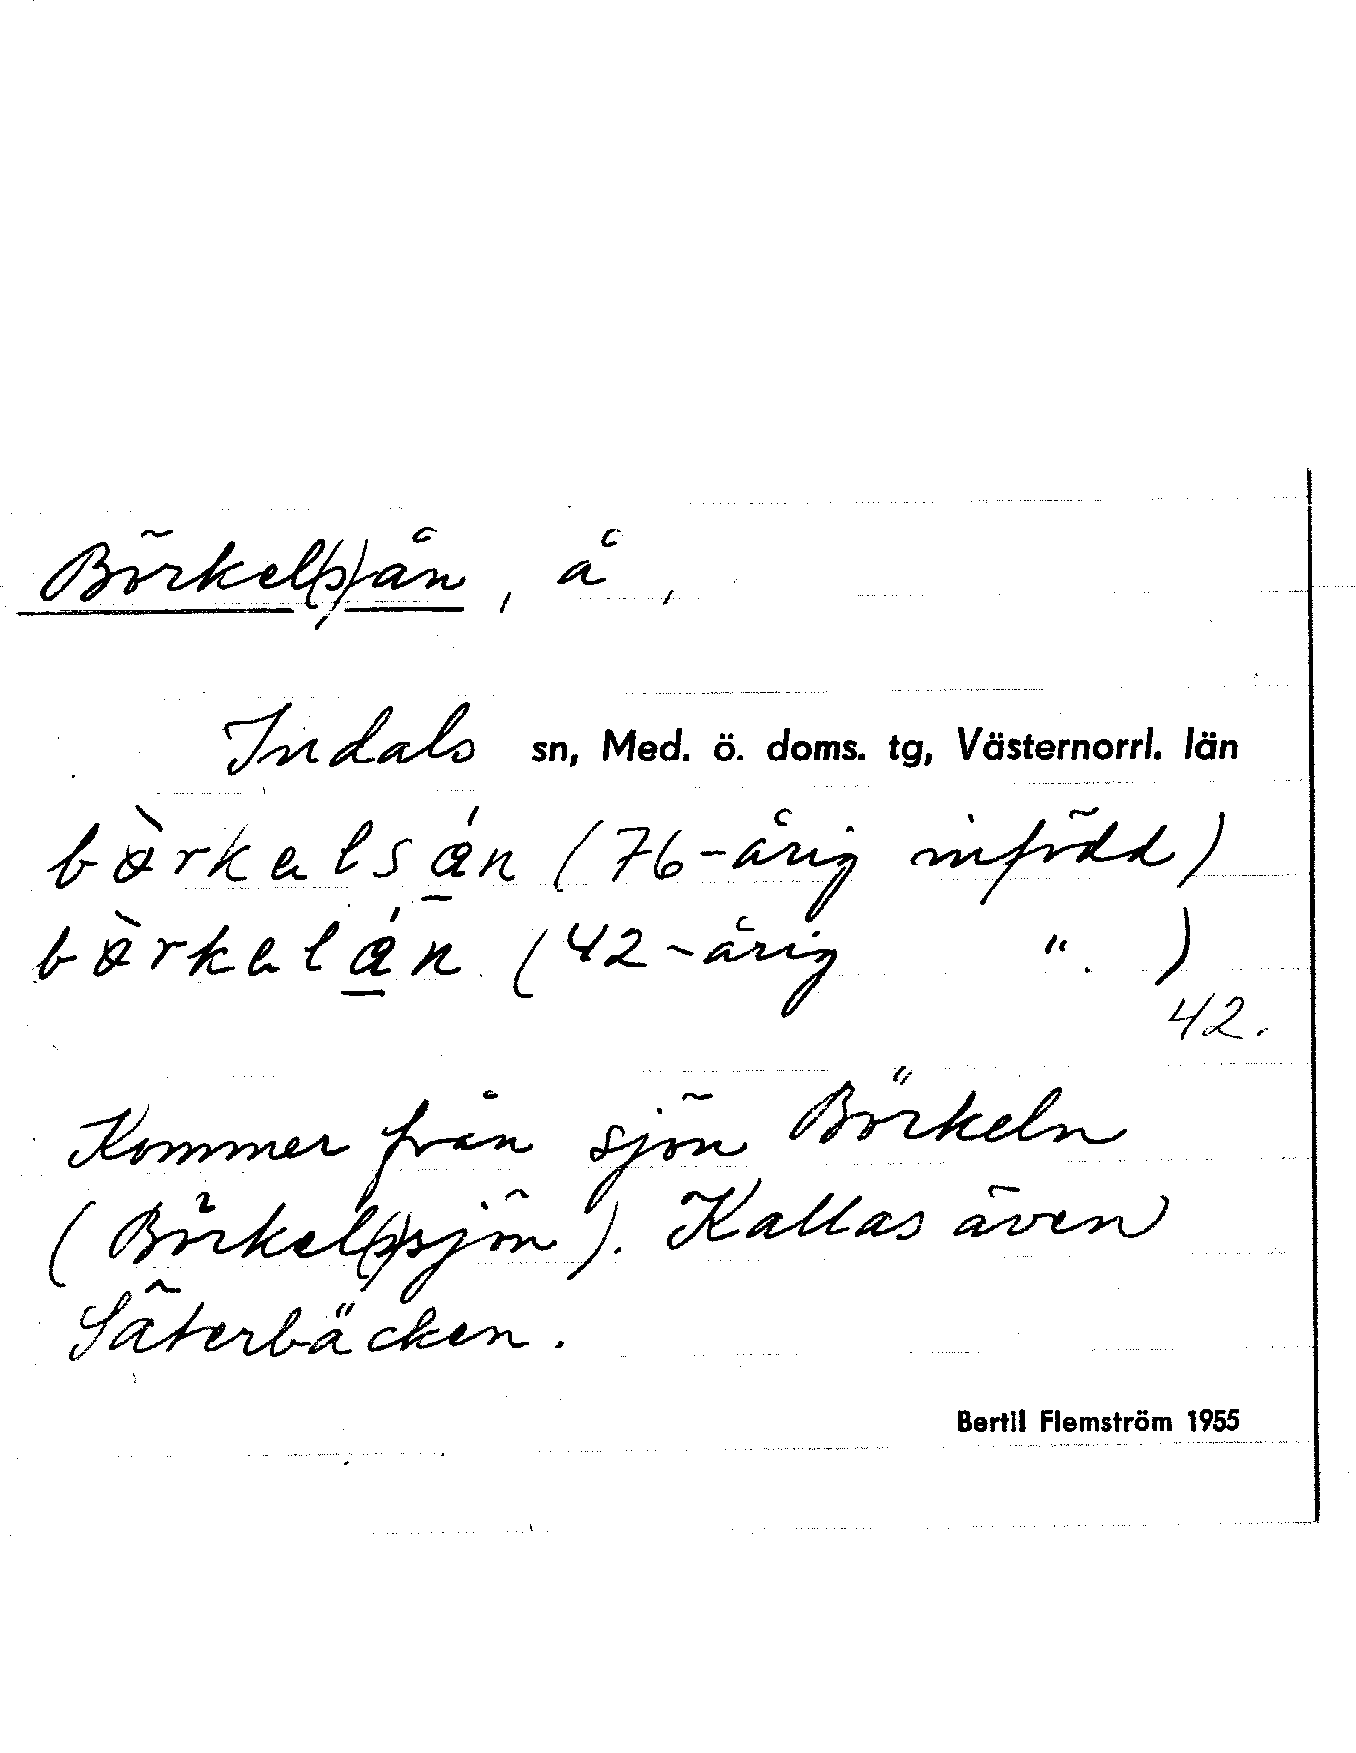 Börkel(s)ån, å,
Indals sn, Med. ö. doms. tg, Västernorrl. län
bờrkelsån (76-årig infödd)
bờrkelån (42-årig " )
42.
Kommer från sjön Börkeln
(Börkel(s)sjön). Kallas även
Säterbäcken.
Bertil Flemström 1955